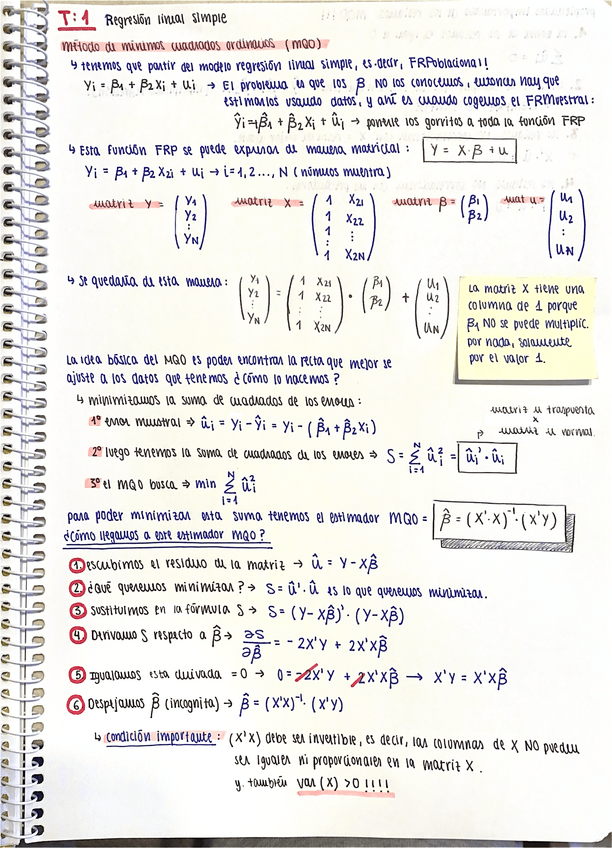 T:1 Regresión lineal simple
método de mínimos cuadrados ordinarios (MQO)
↳ tenemos que partir del modelo regresión lineal simple, es decir, FRPoblacional!
Yi = β1 + β2Xi + ui → El problema es que los β NO los conocemos, entonces hay que
estimarlos usando datos, y ahí es cuando cogemos el FRMuestral:
Ŷi = β̂1 + β̂2Xi + ûi → ponerle los gorritos a toda la función FRP
↳ Esta función FRP se puede expresar de manera matricial: Y = X·β + u
Yi = β1 + β2X2i + ui → i=1,2..., N (números muestra)
matriz Y = (Y1 Y2 ⋮ YN) matriz X = (1 X21 1 X22 1 ⋮ 1 X2N) matriz β = (β1 β2) mat u = (u1 u2 ⋮ uN)
↳ se quedaría de esta manera: (Y1 Y2 ⋮ YN) = (1 X21 1 X22 ⋮ ⋮ 1 X2N) · (β1 β2) + (u1 u2 ⋮ uN)
La matriz X tiene una
columna de 1 porque
β1 NO se puede multiplic.
por nada, solamente
por el valor 1.
La idea básica del MQO es poder encontrar la recta que mejor se
ajuste a los datos que tenemos ¿cómo lo hacemos?
↳ minimizamos la suma de cuadrados de los errores:
matriz u traspuesta
x
matriz u normal.
1º error muestral ⇒ ûi = Yi - Ŷi = Yi - (β̂1 + β̂2Xi)
2º luego tenemos la suma de cuadrados de los errores ⇒ S = Σ_{i=1}^{N} ûi² = ûi' · ûi
3º el MQO busca ⇒ min Σ_{i=1}^{N} ûi²
para poder minimizar esta suma tenemos el estimador MQO = β̂ = (X'·X)⁻¹·(X'Y)
¿Cómo llegamos a este estimador MQO?
1. escribimos el residuo de la matriz → û = Y - Xβ̂
2. ¿Qué queremos minimizar? → S = û'·û es lo que queremos minimizar.
3 sustituimos en la fórmula S → S = (Y - Xβ̂)' · (Y - Xβ̂)
4 Derivamo S respecto a β̂ → ∂S/∂β̂ = - 2X'Y + 2X'Xβ̂
5 Igualamos esta derivada = 0 → 0 = -2X'Y + 2X'Xβ̂ → X'Y = X'Xβ̂
6 Despejamos β̂ (incognita) → β̂ = (X'X)⁻¹·(X'Y)
↳ condición importante: (X'X) debe ser invertible, es decir, las columnas de X NO pueden
ser iguales ni proporcionales en la matriz X.
y. también var(X) > 0 !!!!